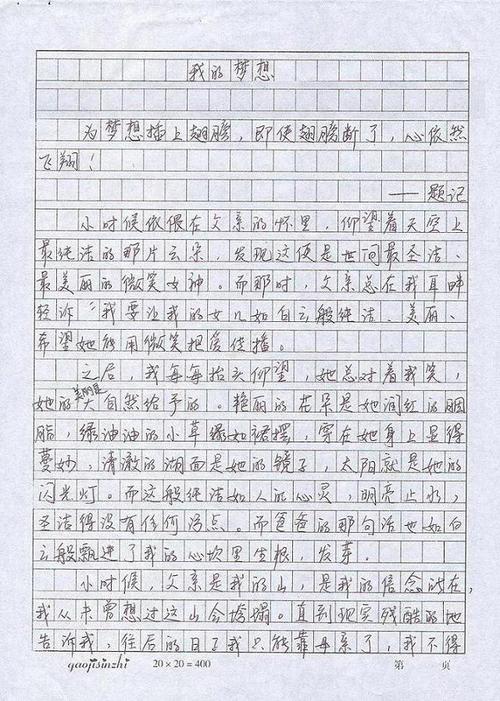 我的梦想
为梦想插上翅膀，即使翅膀断了，心依然
飞翔！
——题记
小时候依偎在父亲的怀里，仰望着天空上
最纯洁的那片云朵，发现这便是世间最圣洁、
最美丽的微笑女神。而那时，父亲总在我耳畔
轻诉“我要让我的女儿如白云般纯洁、美丽、
希望她能用微笑把爱传播。
之后，我每每抬头仰望，她总对着我笑，
她的美丽是大自然给予的。艳丽的花朵是她润红的胭
脂，绿油油的小草绿如裙摆，穿在她身上显得
曼妙，清澈的湖面是她的镜子，太阳就是她的
闪光灯。而这般纯洁如人的心灵，明亮止水，
圣洁得没有任何污点。而爸爸的那句话也如白
云般飘进了我的心坎里生根，发芽．
小时候，父亲是我的山，是我的信念所在，
我从未曾想过这山会垮塌。直到现实残酷的地
告诉我，往后的日子我只能靠母亲了，我不得
gaojisinzhi 20×20=400 第 页